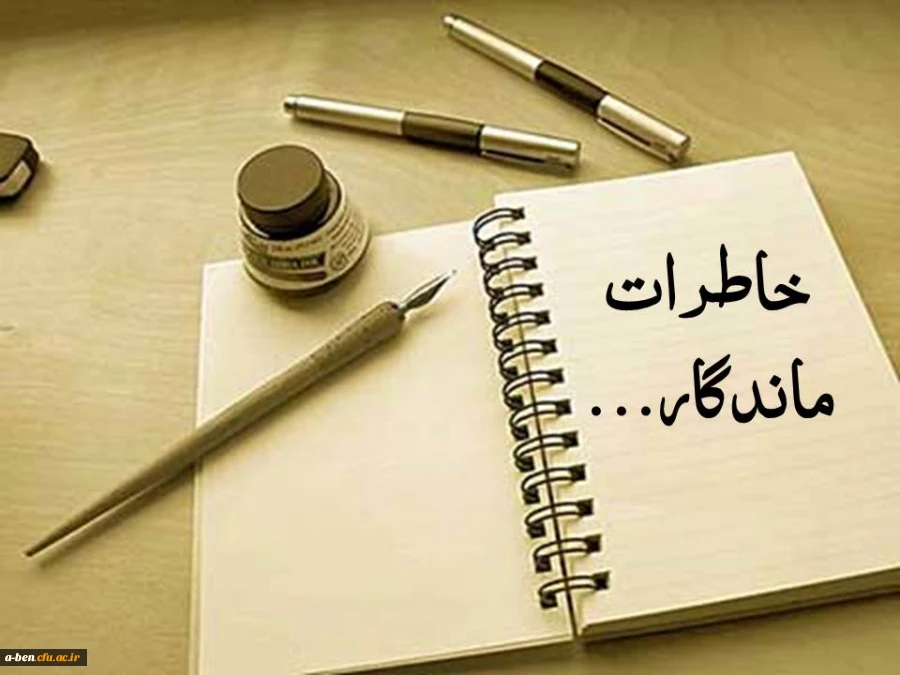 خاطرات
ماندگار...
a-ben.cfu.ac.ir